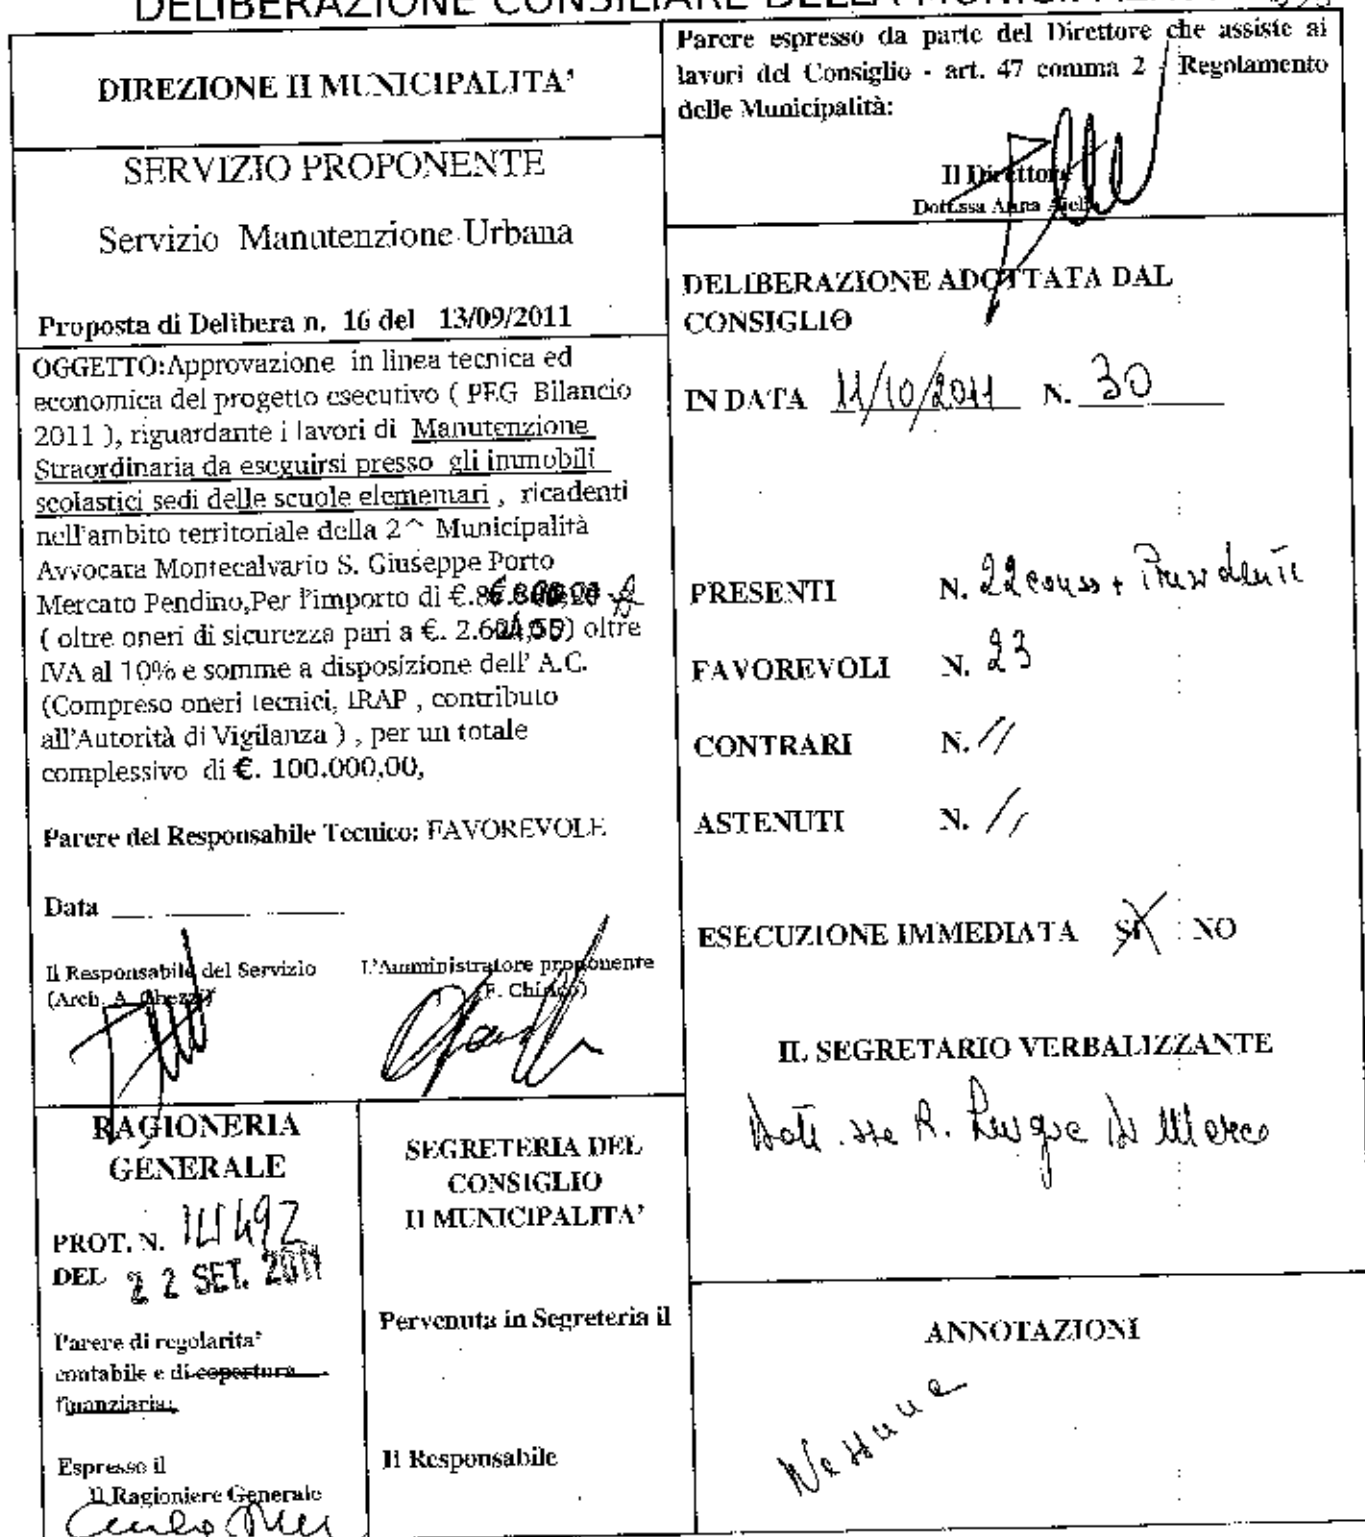 DELIBERAZIONE CONSILIARE DELLA
DIREZIONE II MUNICIPALITA'
SERVIZIO PROPONENTE
Servizio Manutenzione Urbana
Proposta di Delibera n. 16 del 13/09/2011
OGGETTO:Approvazione in linea tecnica ed
economica del progetto esecutivo ( PEG Bilancio
2011 ), riguardante i lavori di Manutenzione
Straordinaria da eseguirsi presso gli immobili
scolastici sedi delle scuole elementari , ricadenti
nell'ambito territoriale della 2^ Municipalità
Avvocata Montecalvario S. Giuseppe Porto
Mercato Pendino,Per l'importo di €.
( oltre oneri di sicurezza pari a €. ) oltre
IVA al 10% e somme a disposizione dell' A.C.
(Compreso oneri tecnici, IRAP , contributo
all'Autorità di Vigilanza ) , per un totale
complessivo di €. 100.000,00,
Parere del Responsabile Tecnico: FAVOREVOLE
Data
Il Responsabile del Servizio
(Arch. A. Ghezzi)
L'Amministratore proponente
(F. Chirico)
RAGIONERIA
GENERALE
PROT. N.
DEL 22 SET. 2011
Parere di regolarita'
contabile e di copertura
finanziaria:
Espresso il
Il Ragioniere Generale
SEGRETERIA DEL
CONSIGLIO
II MUNICIPALITA'
Pervenuta in Segreteria il
Il Responsabile
Parere espresso da parte del Direttore che assiste ai
lavori del Consiglio - art. 47 comma 2 Regolamento
delle Municipalità:
Il Direttore
Dott.ssa Anna Aiello
DELIBERAZIONE ADOTTATA DAL
CONSIGLIO
IN DATA 11/10/2011 N. 30
PRESENTI N. 22 conss + Presidente
FAVOREVOLI N. 23
CONTRARI N. //
ASTENUTI N. //
ESECUZIONE IMMEDIATA SI NO
IL SEGRETARIO VERBALIZZANTE
Dott.ssa R. Di Marco
ANNOTAZIONI
Nessuna